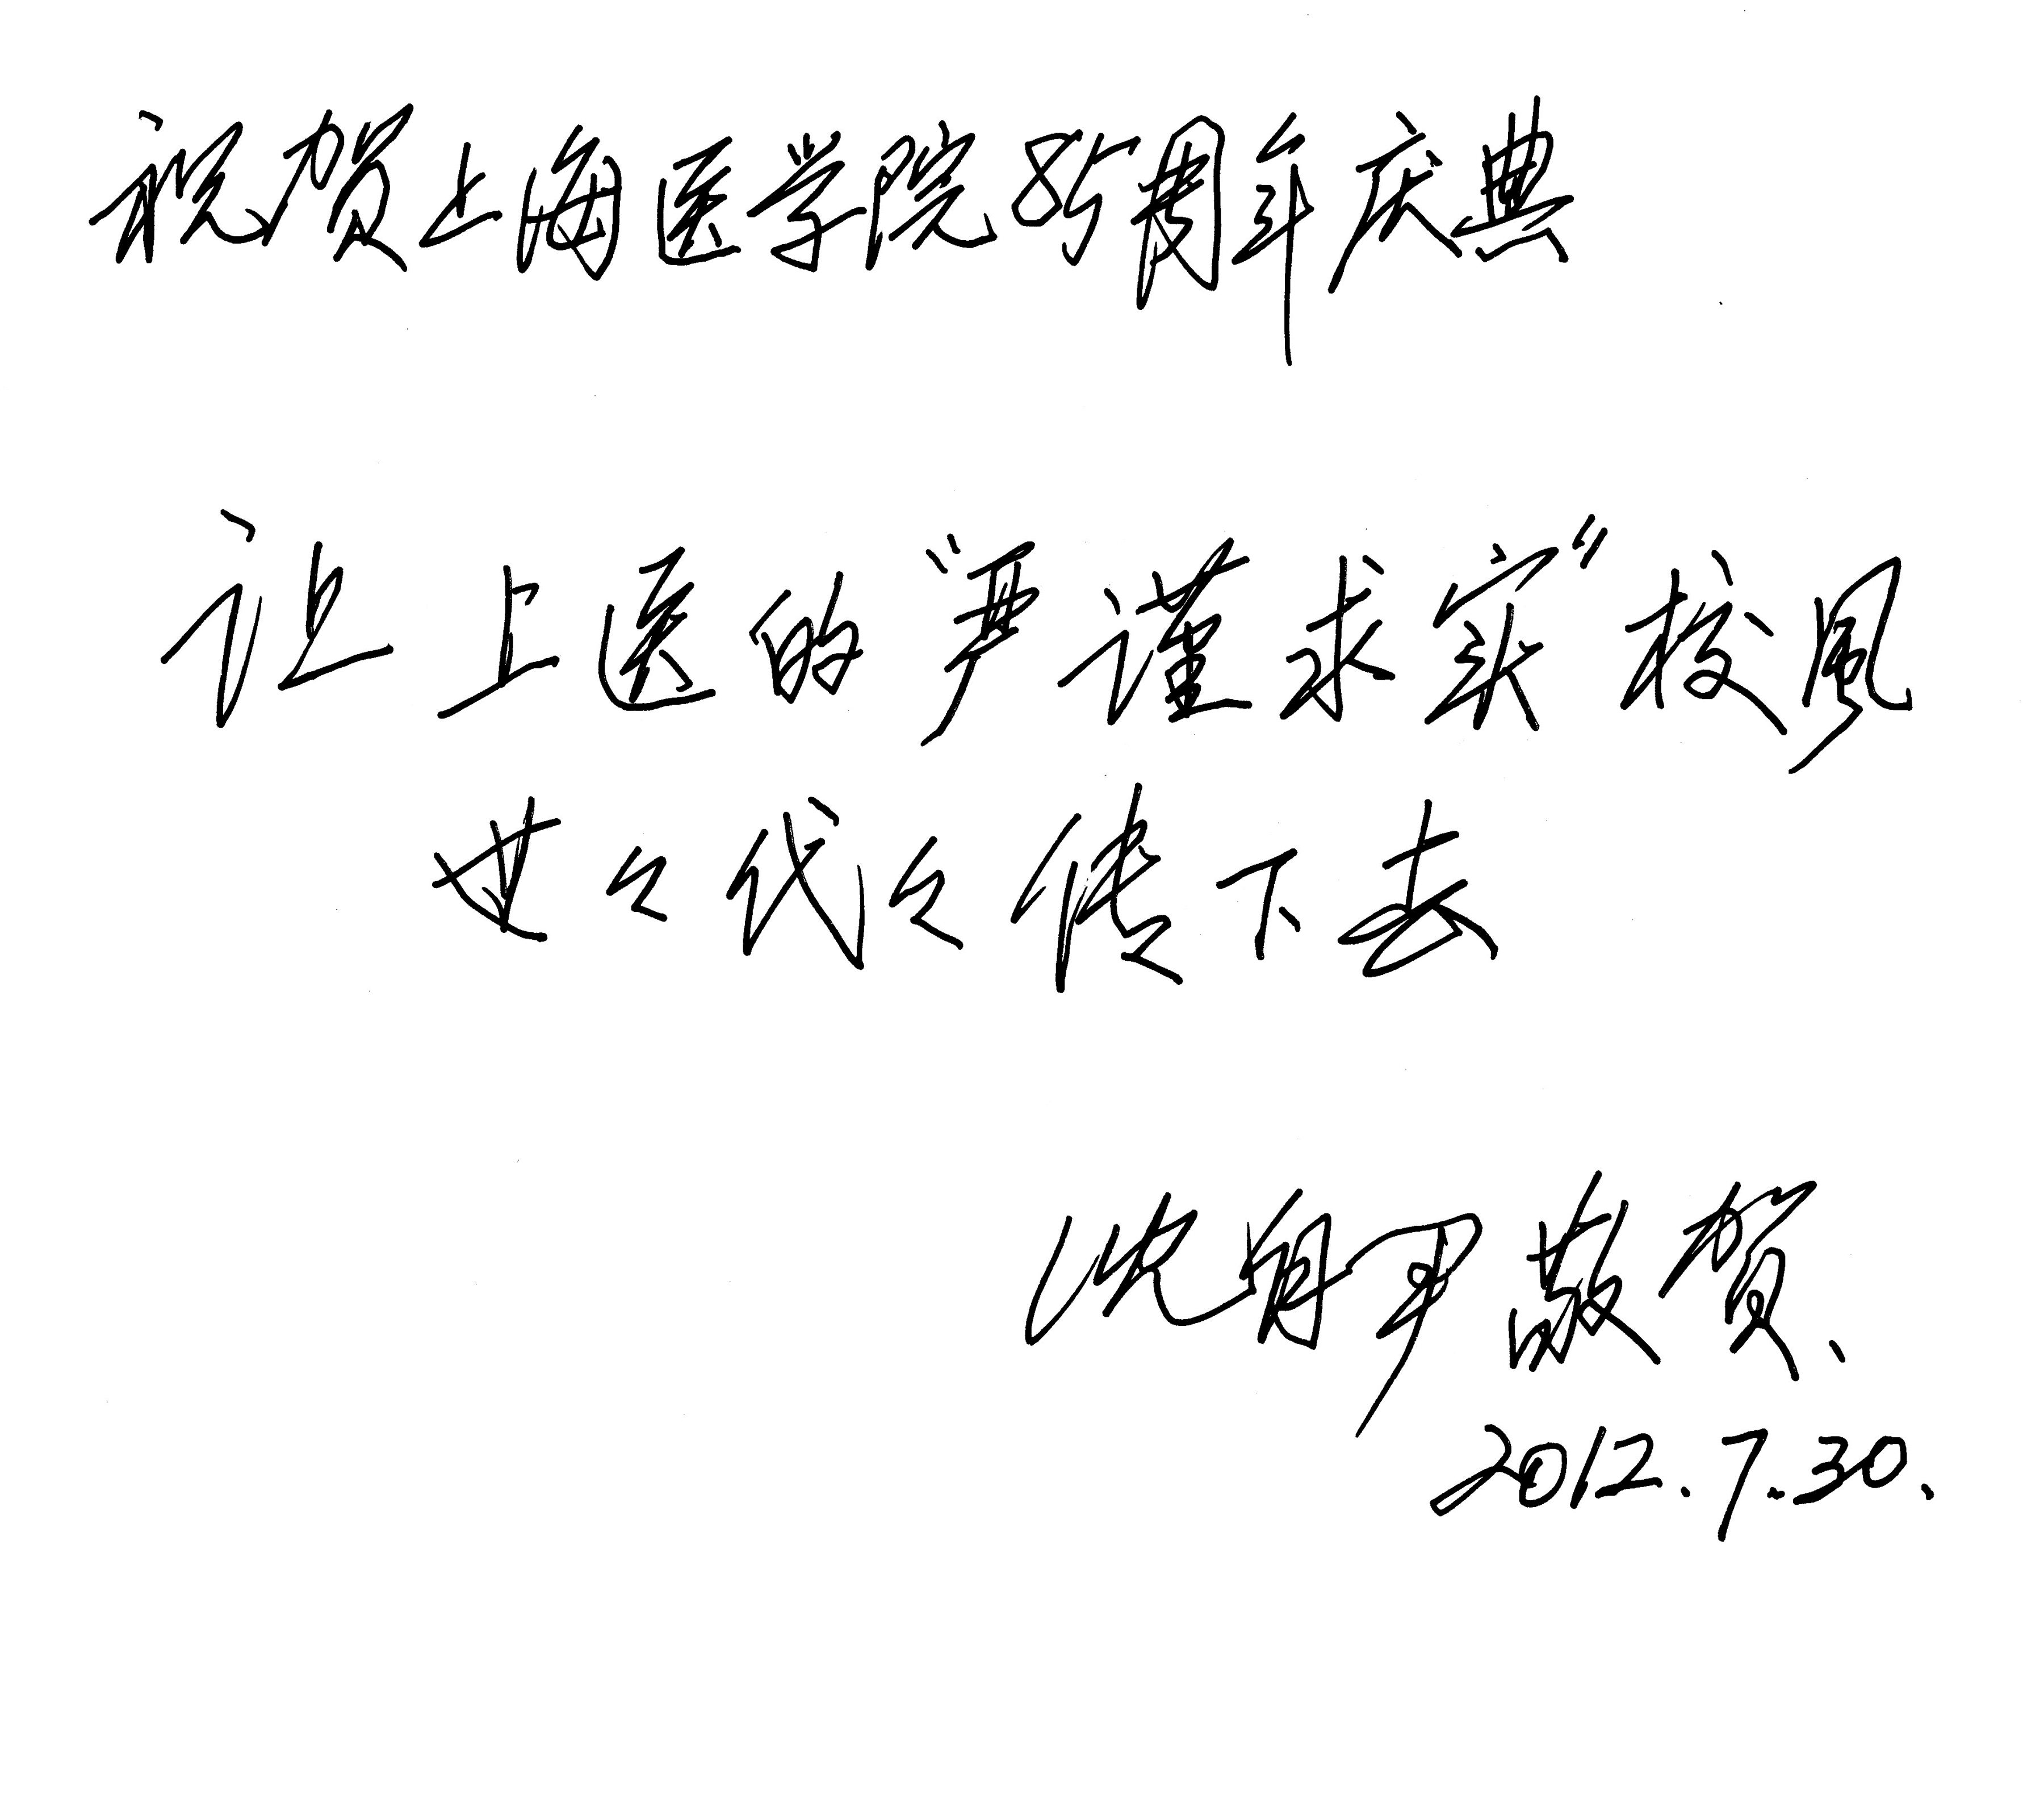 祝贺上海医学院85周年庆典
让上医的"严谨求实"校风
世々代々传下去
沈自尹敬贺、
2012.7.30.